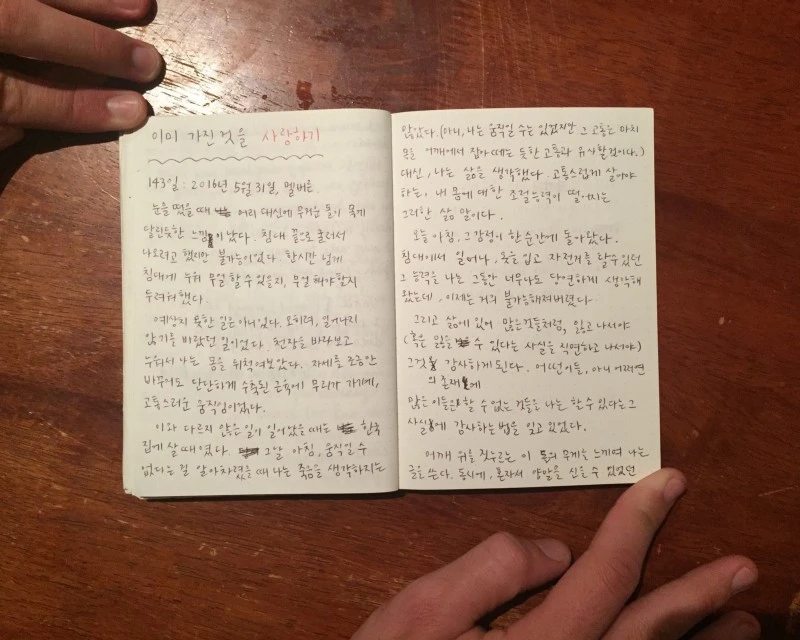 이미 가진 것을 사랑하기
143일 : 2016년 5월 31일, 멜버른.
눈을 떴을 때 머리 대신에 무거운 돌이 목에
달린듯한 느낌이 났다. 침대 끝으로 굴러서
나오려고 했지만 불가능이었다. 한시간 넘게
침대에 누워 무얼 할 수 있을지, 무얼 해야 할지
두려워했다.
예상치 못한 일은 아니었다. 오히려, 일어나지
않기를 바랐던 일이었다. 천장을 바라보고
누워서 나는 몸을 뒤척여보았다. 자세를 조금만
바꾸어도 단단하게 수축된 근육에 무리가 가기에,
고통스러운 움직임이었다.
이와 다르지 않은 일이 일어났을 때는 한국
집에 살 때였다. 그날 아침, 움직일 수
없다는 걸 알아차렸을 때 나는 죽음을 생각하지는
않았다. (아니, 나는 움직일 수는 있었지만 그 고통은 마치
목을 어깨에서 잡아 떼는 듯한 고통과 유사할것이다.)
대신, 나는 삶을 생각했다. 고통스럽게 살아야
하는, 내 몸에 대한 조절능력이 떨어지는
그러한 삶 말이다.
오늘 아침, 그 감정이 한순간에 돌아왔다.
침대에서 일어나, 옷을 입고 자전거를 탈 수 있던
그 능력을 나는 그동안 너무나도 당연하게 생각해
왔는데, 이제는 거의 불가능해져버렸다.
그리고 삶에 있어 많은 것들처럼, 잃고 나서야
(혹은 잃을 수 있다는 사실을 직면하고 나서야)
그것 감사하게 된다. 어떤이들, 아니 어쩌면
의 존재에
많은 이들은 할 수 없는 것들을 나는 할 수 있다는 그
사실에 감사하는 법을 잊고 있었다.
어깨 위를 짓누르는 이 돌의 무게를 느끼며 나는
글을 쓴다. 동시에, 혼자서 양말을 신을 수 있었던